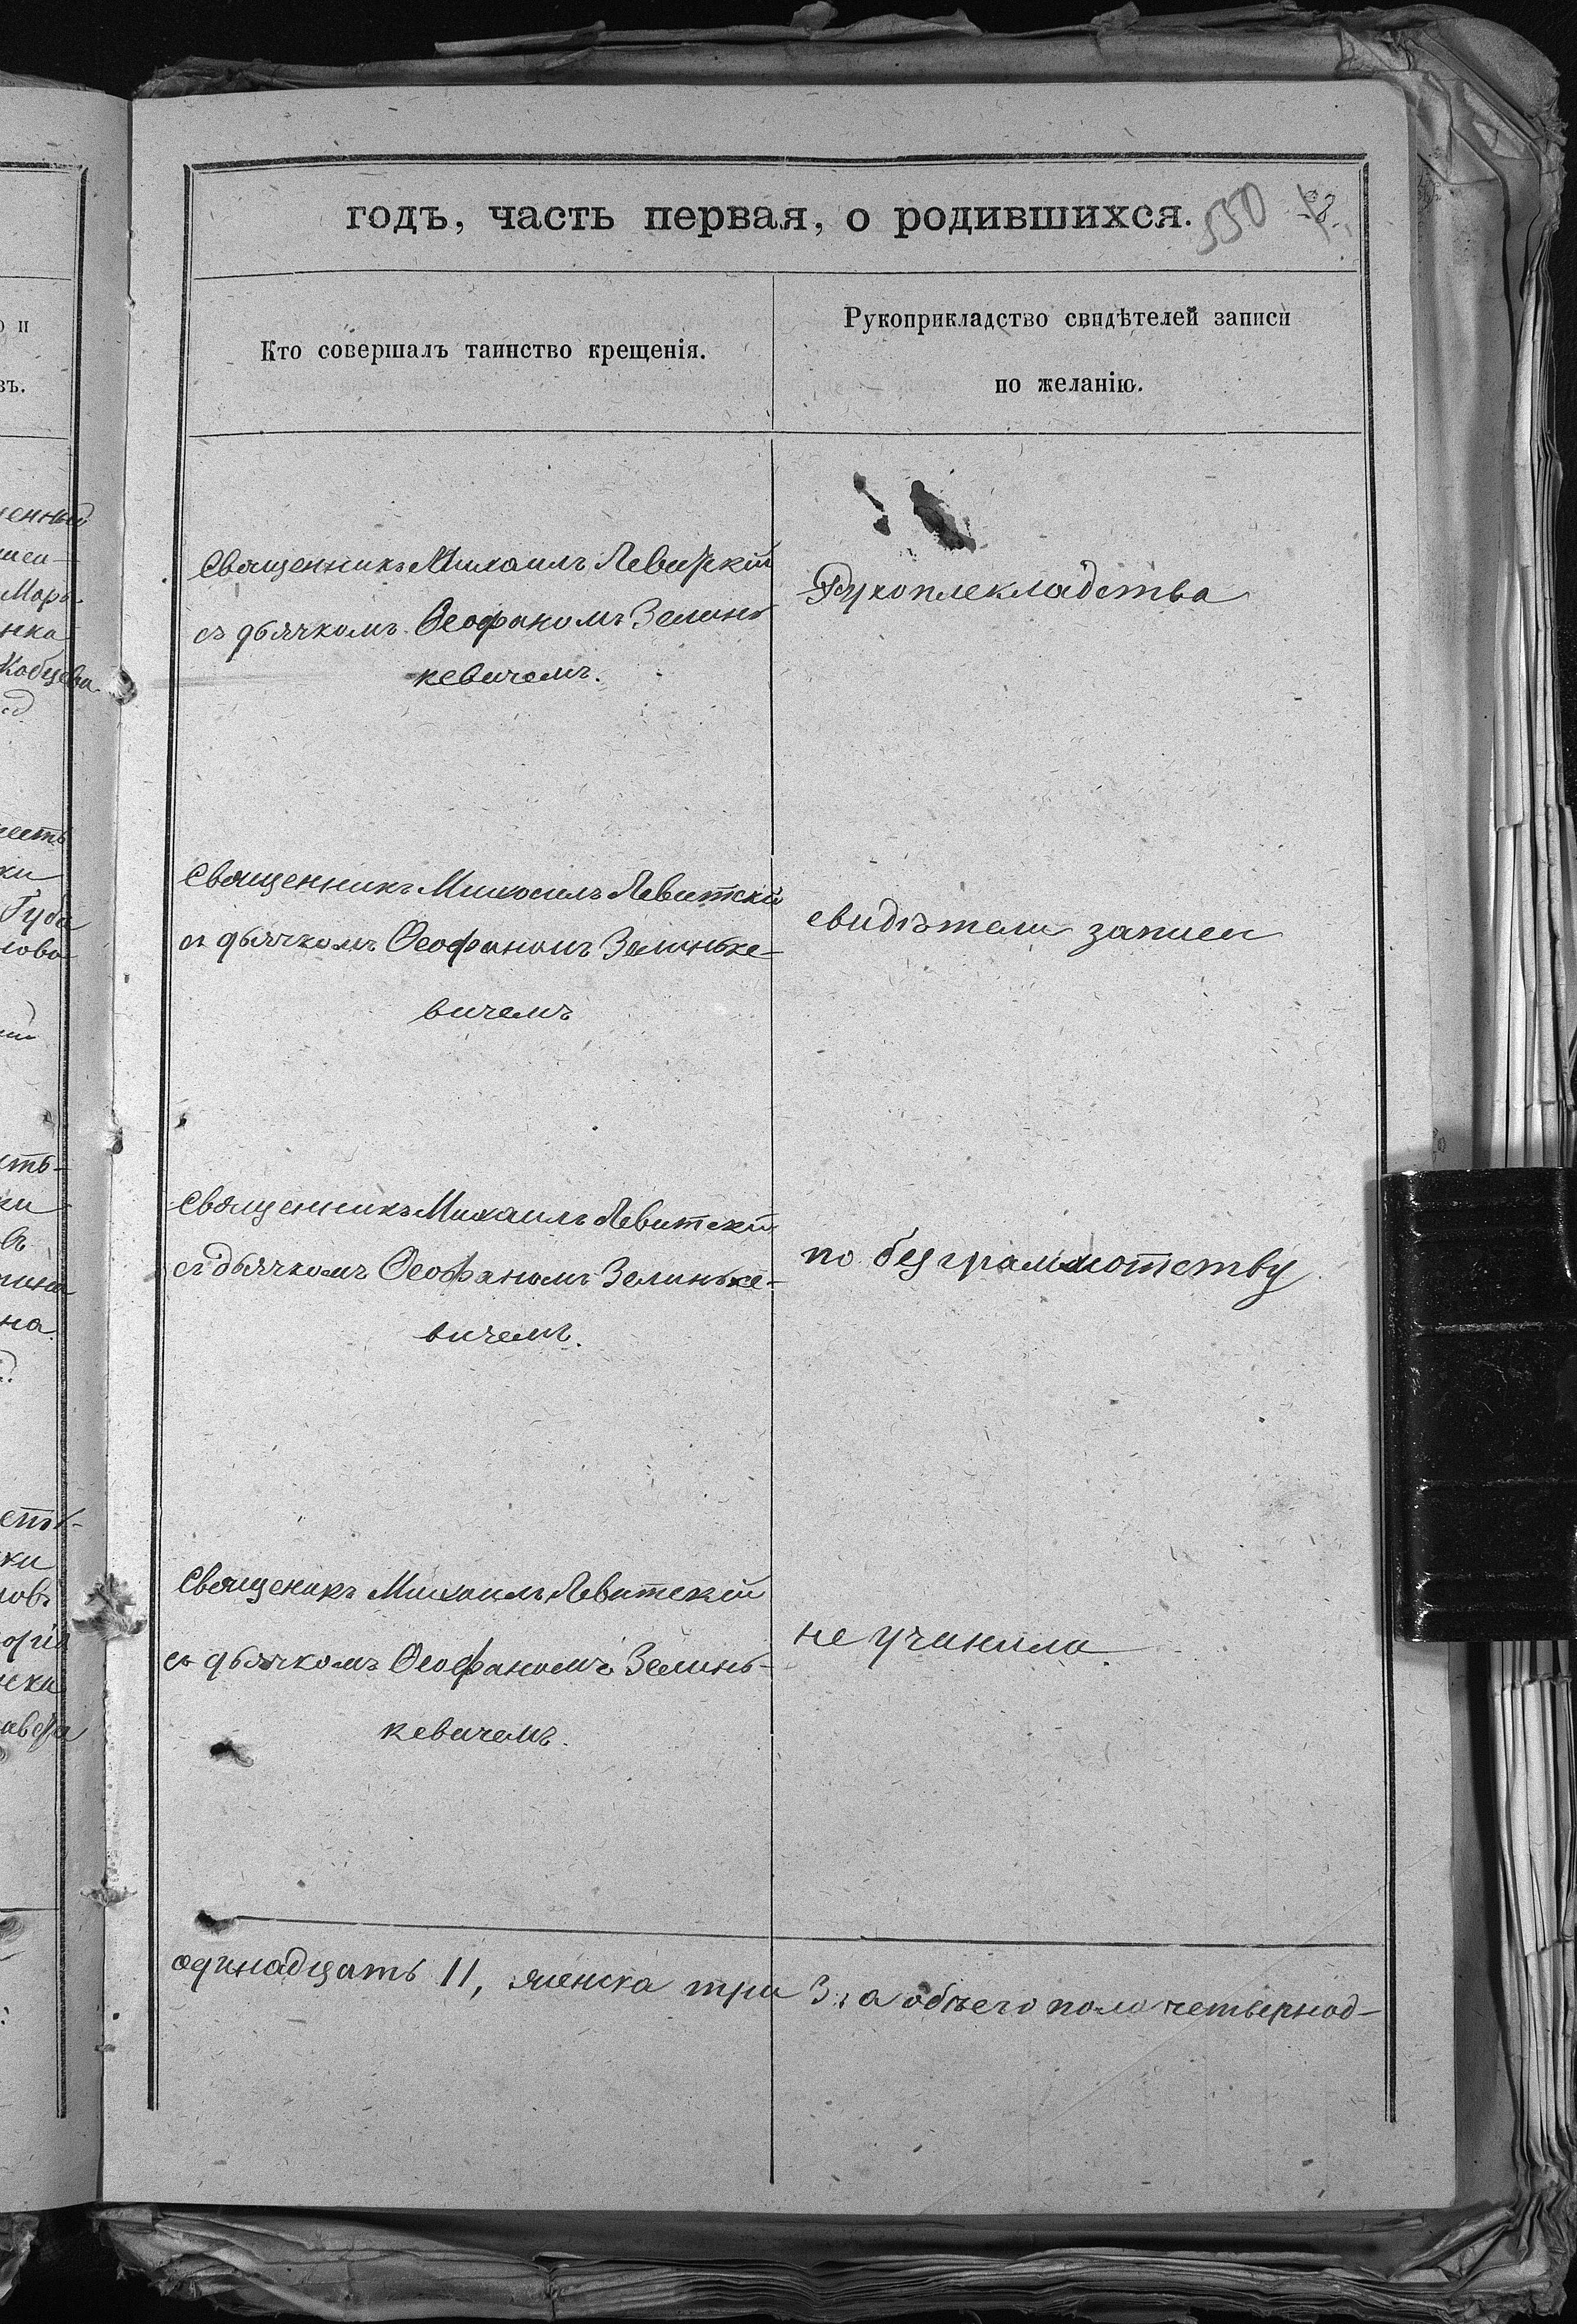 годъ, часть первая, о родившихся.
550
Кто совершалъ таинство крещенія.
Рукоприкладство свидѣтелей записи
по желанію.
Священникъ Михаилъ Левицкій
съ дьячкомъ Ѳеофаномъ Зелинь
кевичемъ.
Рукоплекладства
Священникъ Михаилъ Левитскій
съ дьячкомъ Ѳеофаномъ Зелиньке-
вичемъ
свидѣтели записи
Священникъ Михаилъ Левитскій
съ дьячкомъ Ѳеофаномъ Зелиньке-
вичемъ.
по безграммотству
Священикъ Михаилъ Левитскій
съ дьячкомъ Ѳеофаномъ Зелинь-
кевичемъ.
не учинили
одинадцать 11, женска три 3, а обѣего пола четырнад-